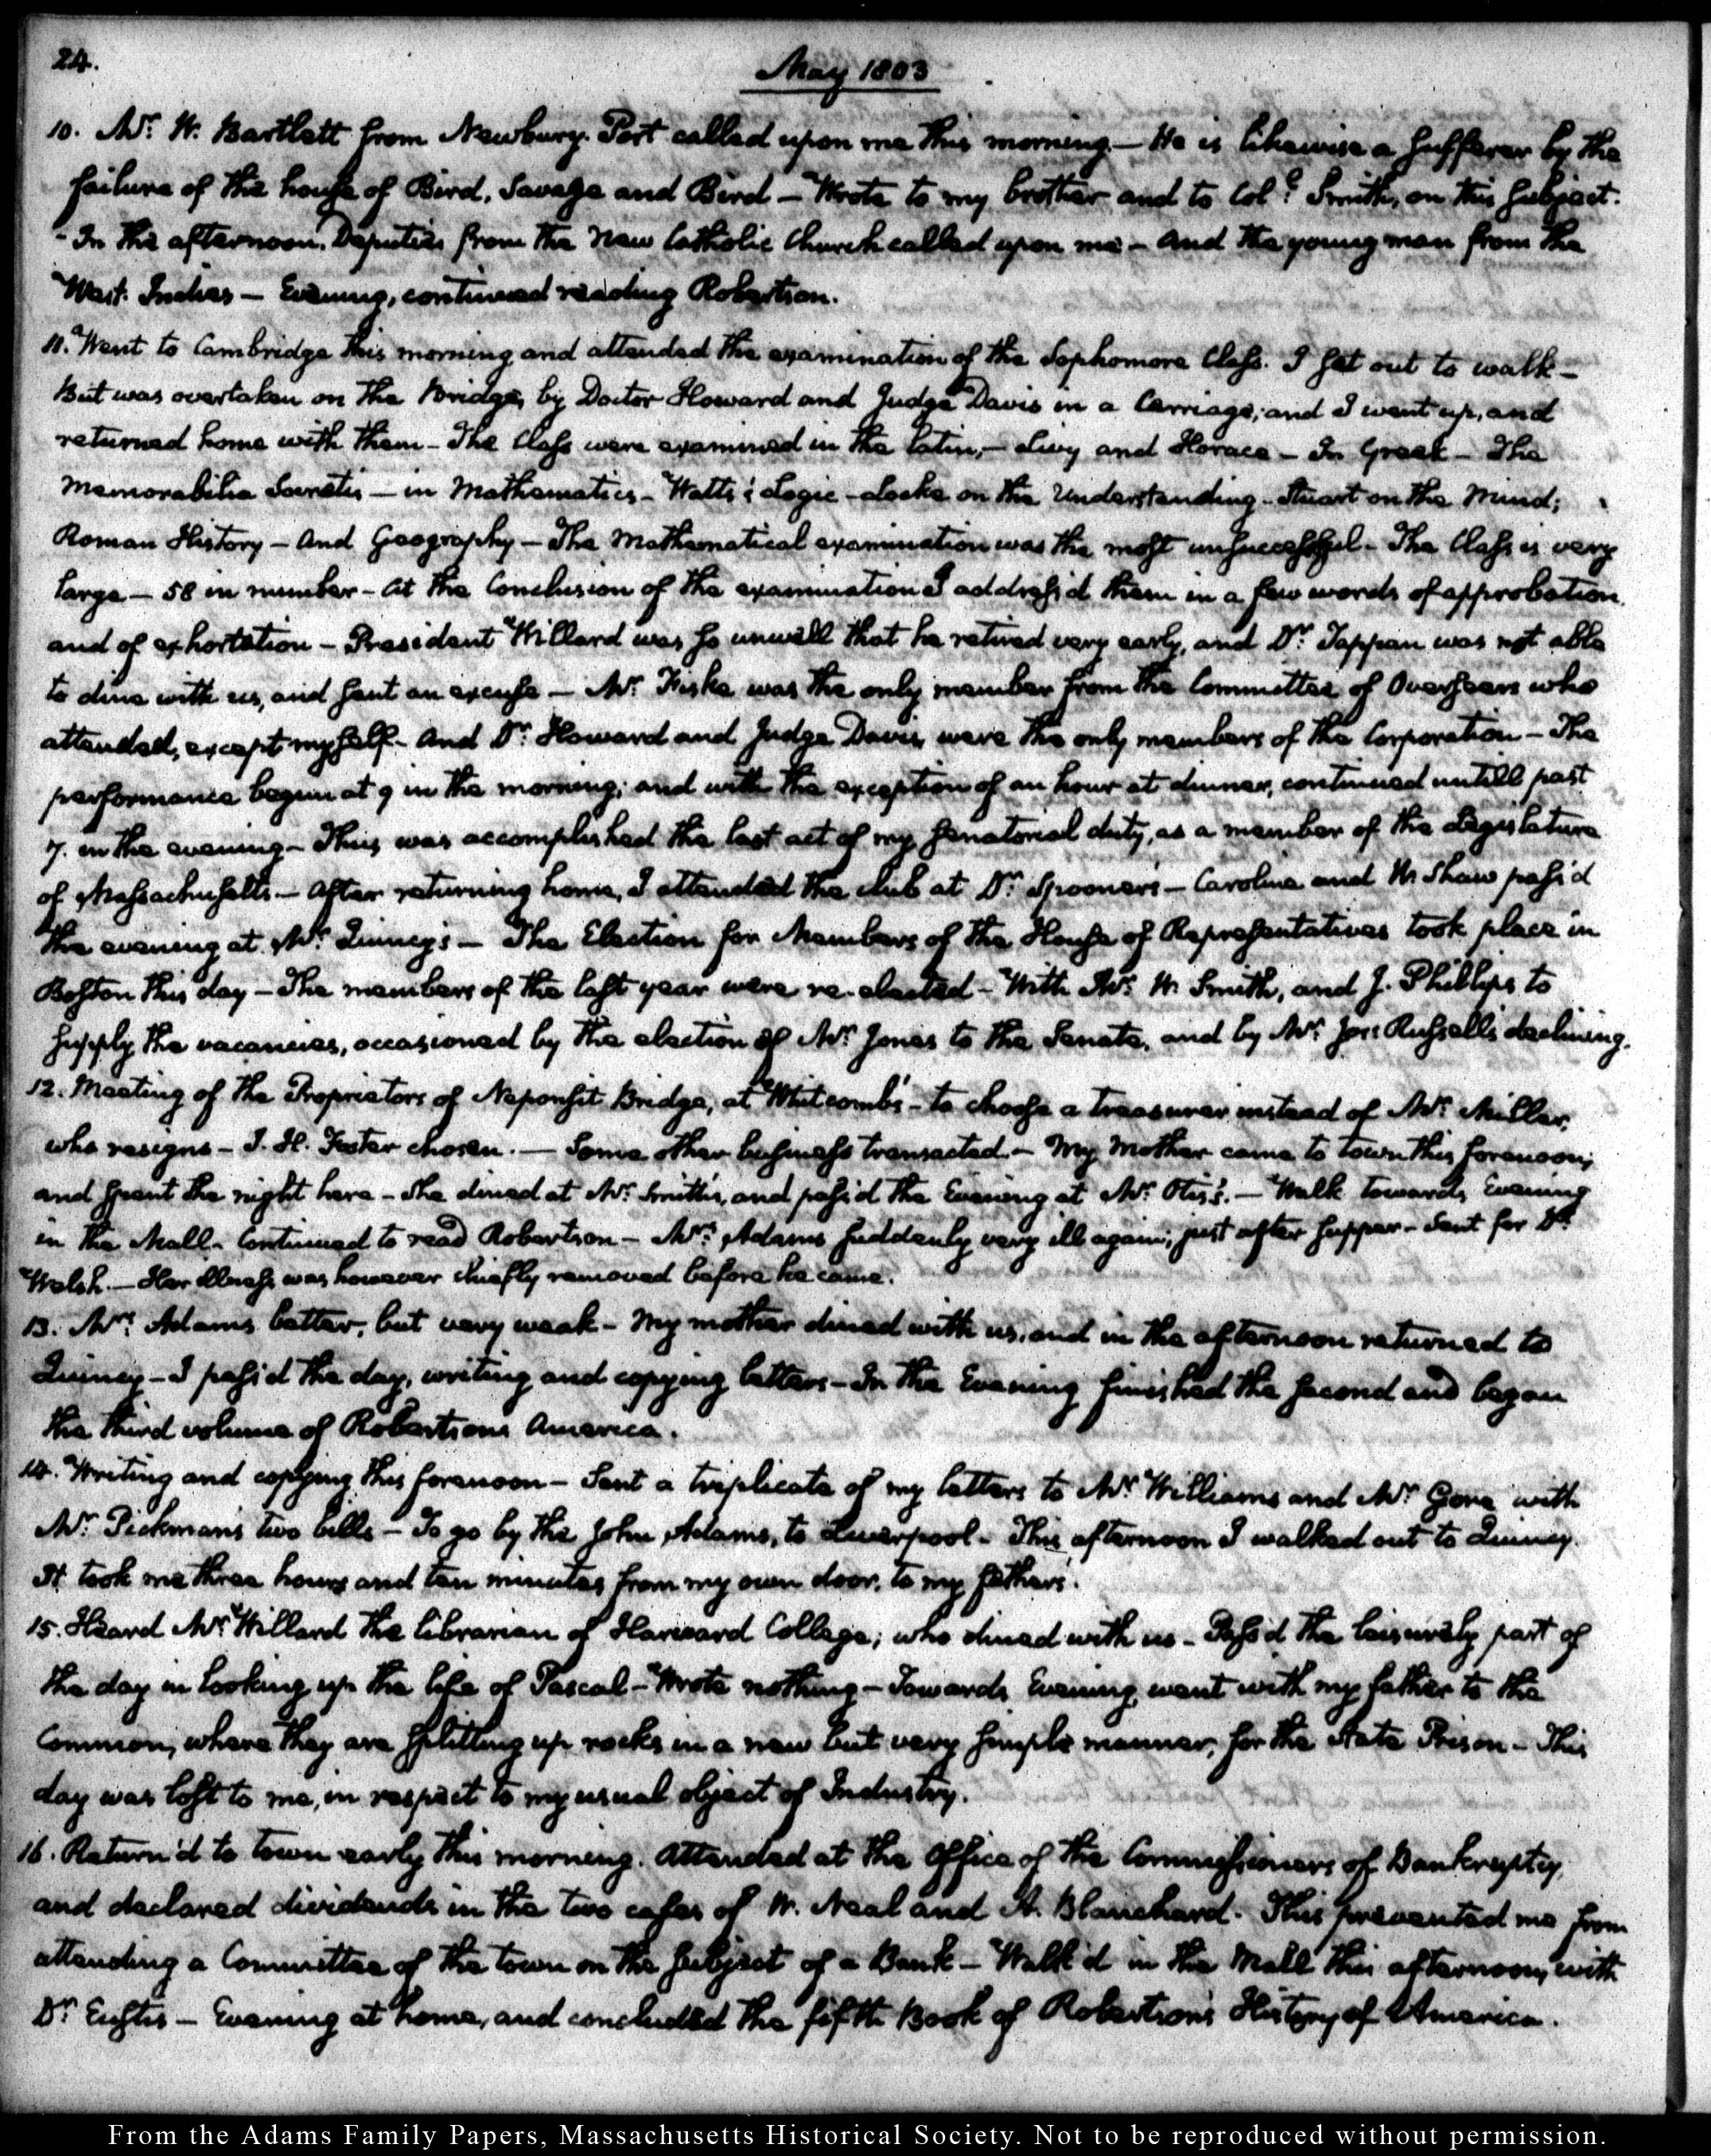 24.
May 1803
10. Mr. W. Bartlett from Newbury-Port called upon me this morning.— He is likewise a sufferer by the
failure of the house of Bird, Savage and Bird — Wrote to my brother and to Coll. Smith, on this subject.
- In the afternoon, Deputies from the new Catholic Church called upon me — And the young man from the
West-Indies — Evening, continued reading Robertson.
11. Went to Cambridge this morning and attended the examination of the Sophomore Class. I set out to walk —
But was overtaken on the Bridge, by Doctor Howard and Judge Davis in a Carriage; and I went up, and
returned home with them — The Class were examined in the latin, — Livy and Horace — In Greek — The
Memorabilia Socratis — in Mathematics — Watts's Logic — Locke on the Understanding — Stuart on the Mind;
Roman History — And Geography — The Mathematical examination was the most unsuccessful — The Class is very
large — 58 in number — At the Conclusion of the examination I address'd them in a few words of approbation
and of exhortation — President Willard was so unwell that he retired very early, and Dr. Tappan was not able
to dine with us, and sent an excuse — Mr. Fiske was the only member from the Committee of Overseers who
attended, except myself — And Dr. Howard and Judge Davis, were the only members of the Corporation — The
performance began at 9 in the morning; and with the exception of an hour at dinner, continued untill past
7. in the evening — Thus was accomplished the last act of my senatorial duty, as a member of the Legislature
of Massachusetts — After returning home, I attended the club at Dr. Spooner's — Caroline and W. Shaw pass'd
the evening at Mr. Quincy's — The Election for Members of the House of Representatives took place in
Boston this day — The members of the last year were re-elected — With Mr. W. Smith, and J. Phillips to
supply the vacancies, occasioned by the election of Mr. Jones to the Senate, and by Mr. Jos: Russell's declining.
12. Meeting of the Proprietors of Neponsit Bridge, at Whitcomb's — to choose a treasurer instead of Mr. Miller,
who resigns — J. H. Foster chosen. — Some other business transacted. — My Mother came to town this forenoon,
and spent the night here — She dined at Mr. Smith's, and pass'd the Evening at Mr. Otis's. — Walk towards Evening
in the Mall. Continued to read Robertson — Mrs. Adams suddenly very ill again; just after supper — Sent for Dr.
Welsh. — Her illness was however chiefly removed before he came.
13. Mrs. Adams better, but very weak — My mother dined with us, and in the afternoon returned to
Quincy — I pass'd the day, writing and copying letters — In the Evening finished the second and began
the third volume of Robertsons America.
14. Writing and copying this forenoon — Sent a triplicate of my letters to Mr. Williams and Mr. Gore with
Mr. Pickman's two bills — To go by the John Adams, to Liverpool — This afternoon I walked out to Quincy.
It took me three hours and ten minutes from my own door, to my fathers.
15. Heard Mr. Willard the librarian of Harvard College; who dined with us — Pass'd the leisurely part of
the day in looking up the life of Pascal — Wrote nothing — Towards Evening went with my father to the
Common, where they are splitting up rocks in a new but very simple manner, for the State Prison — This
day was lost to me, in respect to my usual object of Industry.
16. Return'd to town early this morning. Attended at the Office of the Commissioners of Bankruptcy,
and declared dividends in the two cases of W. Neal and A. Blanchard. This prevented me from
attending a Committee of the town on the subject of a Bank — Walk'd in the Mall this afternoon, with
Dr. Eustis — Evening at home, and concluded the fifth Book of Robertson's History of America.
From the Adams Family Papers, Massachusetts Historical Society. Not to be reproduced without permission.